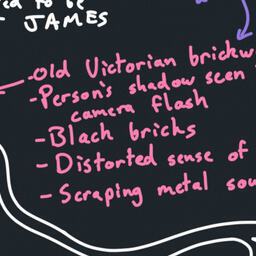 to be
JAMES
-Old Victorian brickw
-Person's shadow seen
camera flash
-Black bricks
- Distorted sense of
- Scraping metal sou